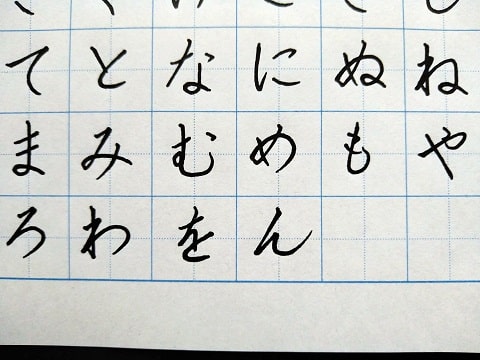 てとなにぬね
まみむめもや
ろわをん